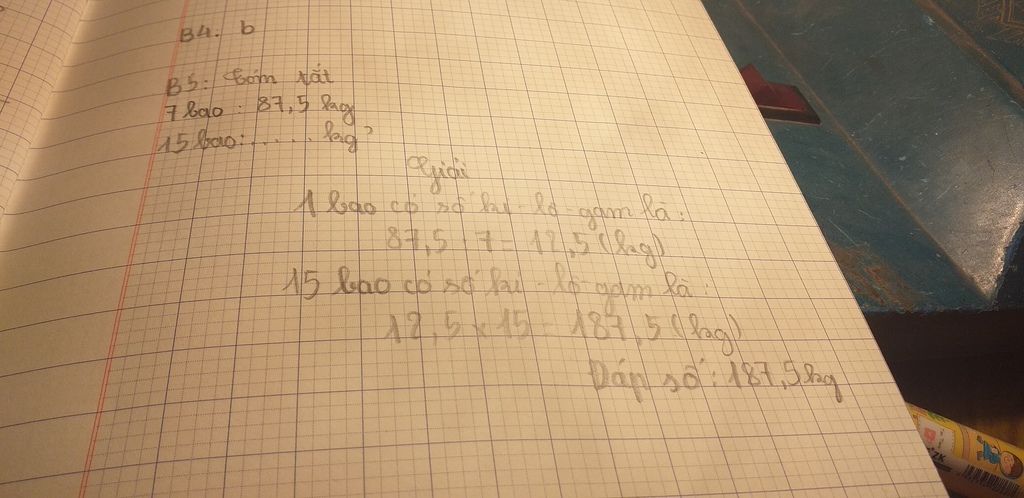 B4. b
B5: Tóm tắt
7 bao : 87,5 kg
15 bao: ..... kg?
Giải
1 bao có số ki-lô-gam là:
87,5 : 7 = 12,5 (kg)
15 bao có số ki-lô-gam là:
12,5 x 15 = 187,5 (kg)
Đáp số: 187,5kg